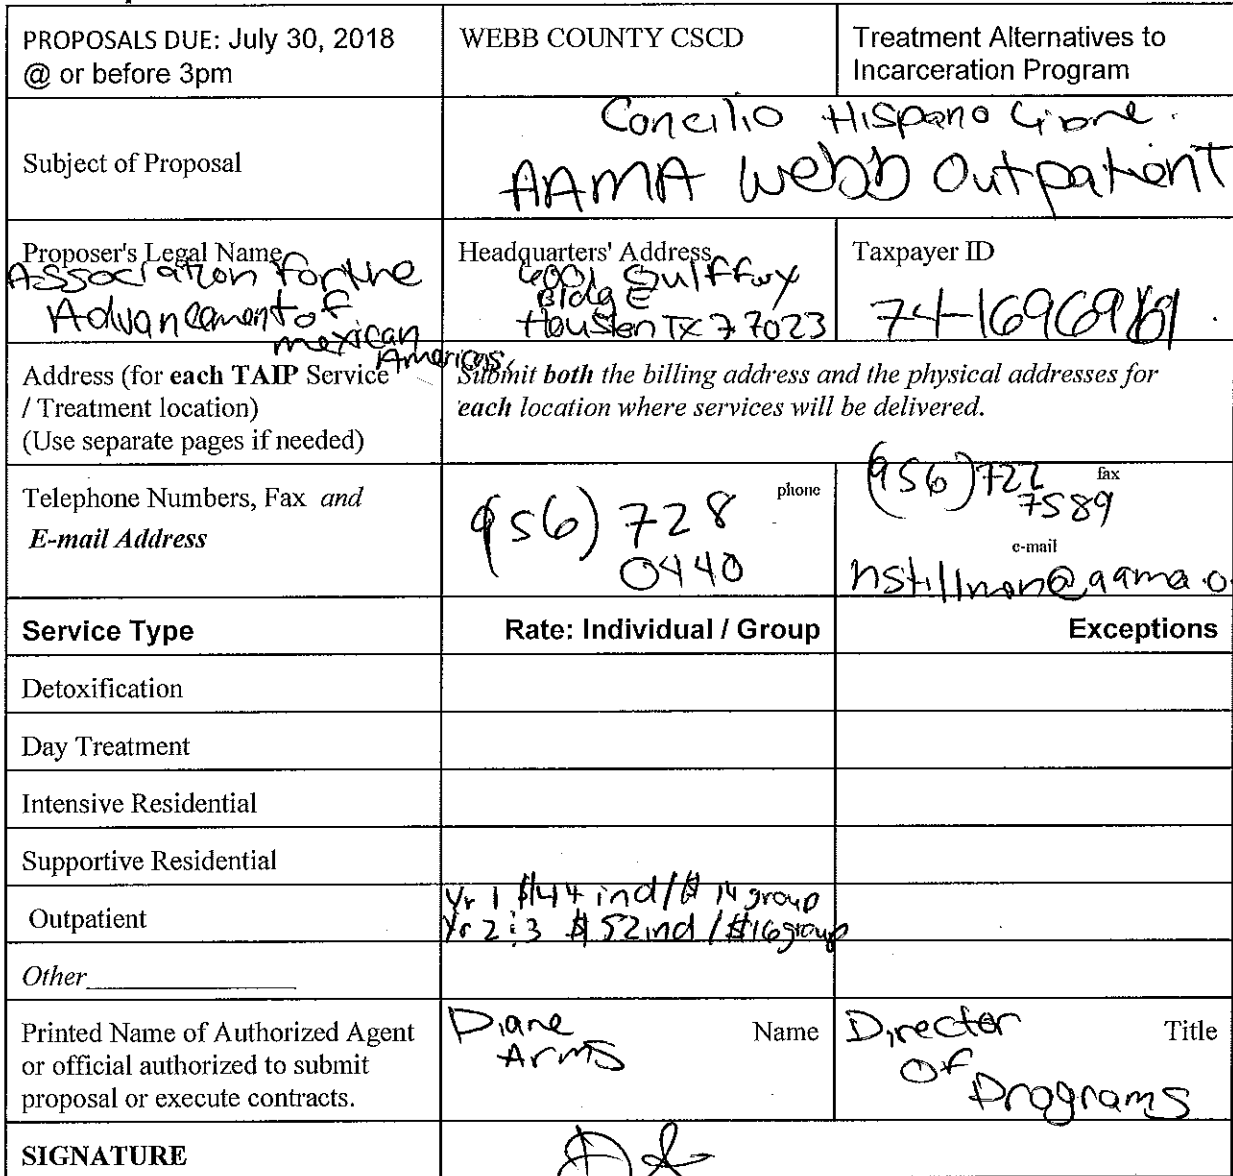 PROPOSALS DUE: July 30, 2018
@ or before 3pm
WEBB COUNTY CSCD
Treatment Alternatives to
Incarceration Program
Subject of Proposal
Concilio Hispano
AAMA Webb Outpatient
Proposer's Legal Name
Association for the
Advancement of
mexican
Americas,
Headquarters' Address
6001 Gulf Fwy
Bldg E
Houston TX 77023
Taxpayer ID
Address (for each TAIP Service
/ Treatment location)
(Use separate pages if needed)
Submit both the billing address and the physical addresses for
each location where services will be delivered.
Telephone Numbers, Fax and
E-mail Address
(956) 728 phone
0440
(956) 722 fax
7589
e-mail
nstillman@aama.o
Service Type
Rate: Individual / Group
Exceptions
Detoxification
Day Treatment
Intensive Residential
Supportive Residential
Outpatient
Yr 1 $44 ind / $14 group
Yr 2 : 3 $52 ind / $16 group
Other
Printed Name of Authorized Agent
or official authorized to submit
proposal or execute contracts.
Diane Name
Arms
Director Title
Of
Programs
SIGNATURE